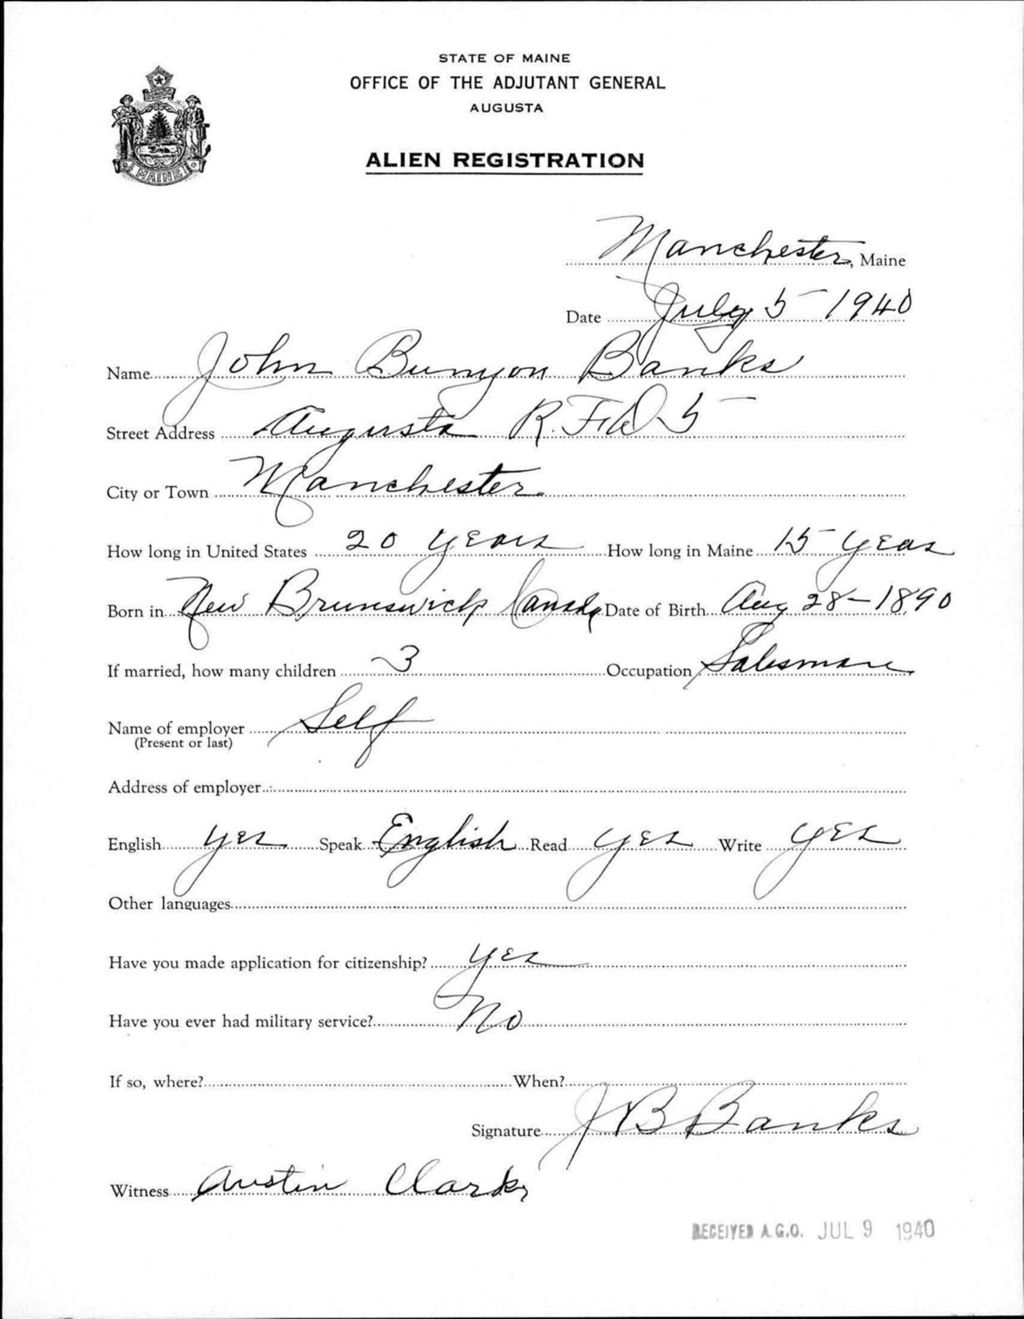 STATE OF MAINE
OFFICE OF THE ADJUTANT GENERAL
AUGUSTA
ALIEN REGISTRATION
MAINE
Manchester, Maine
Date July 5 - 1940
Name John Bunyon Banks
Street Address Augusta R.F.D 5
City or Town Manchester
How long in United States 20 years How long in Maine 15 years
Born in New Brunswick Canada Date of Birth Aug 28 - 1890
If married, how many children 3 Occupation Salesman
Name of employer Self
(Present or last)
Address of employer
English yes Speak English Read yes Write yes
Other languages
Have you made application for citizenship? yes
Have you ever had military service? No
If so, where? When?
Signature J B Banks
Witness Austin Clark
RECEIVED A.G.O. JUL 9 1940